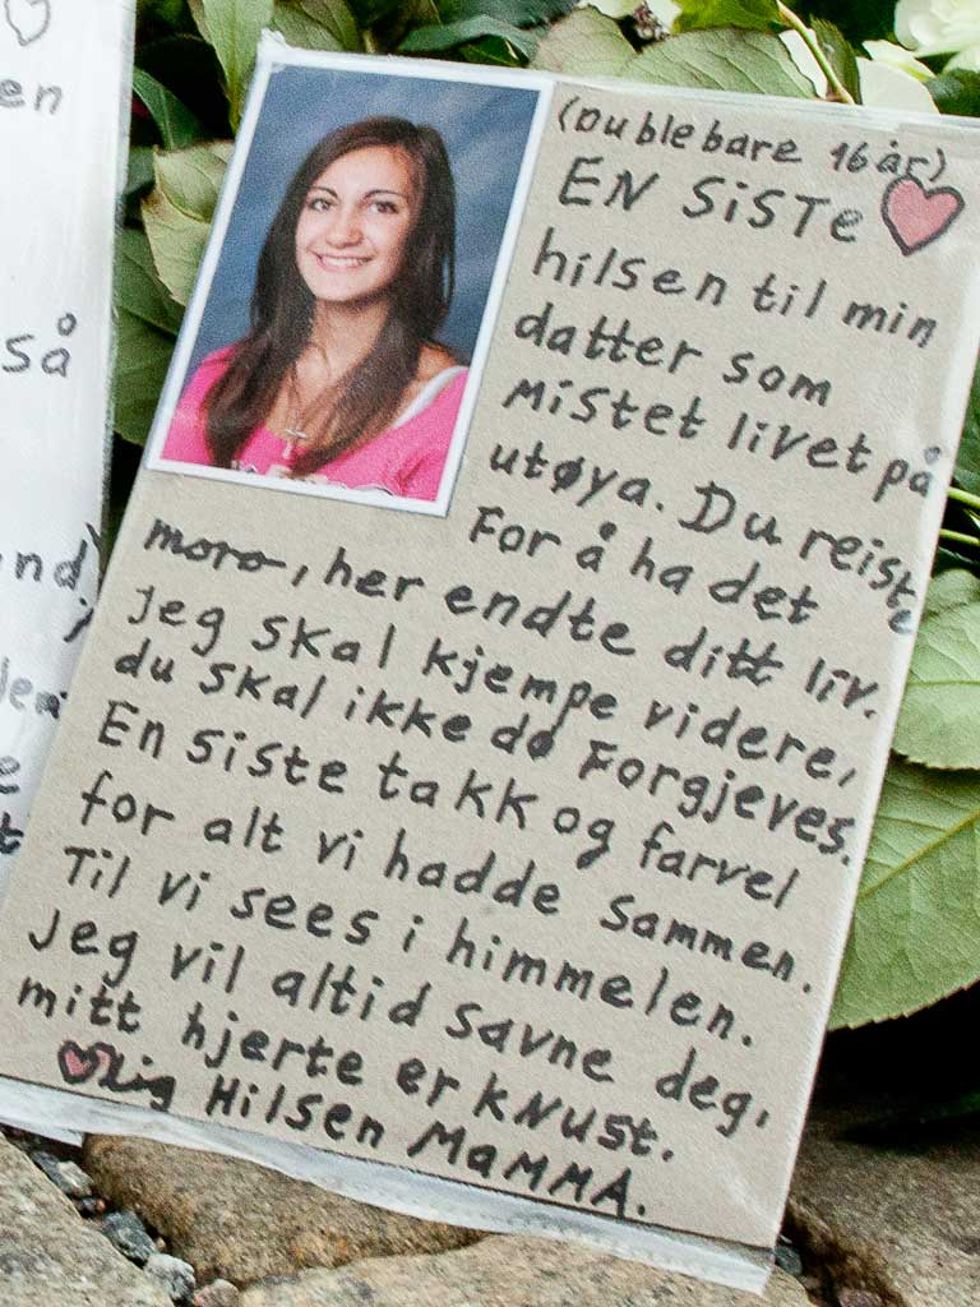 (Du ble bare 16 år)
EN SiSTe
hilsen til min
datter som
Mistet livet på
utøya. Du reiste
For å ha det
moro, her endte ditt liv.
Jeg skal kjempe videre,
du skal ikke dø Forgjeves.
En siste takk og farvel
for alt vi hadde sammen.
Til vi sees i himmelen.
Jeg vil altid savne deg,
mitt hjerte er kNust.
lig Hilsen MaMMA.
en
så
nd